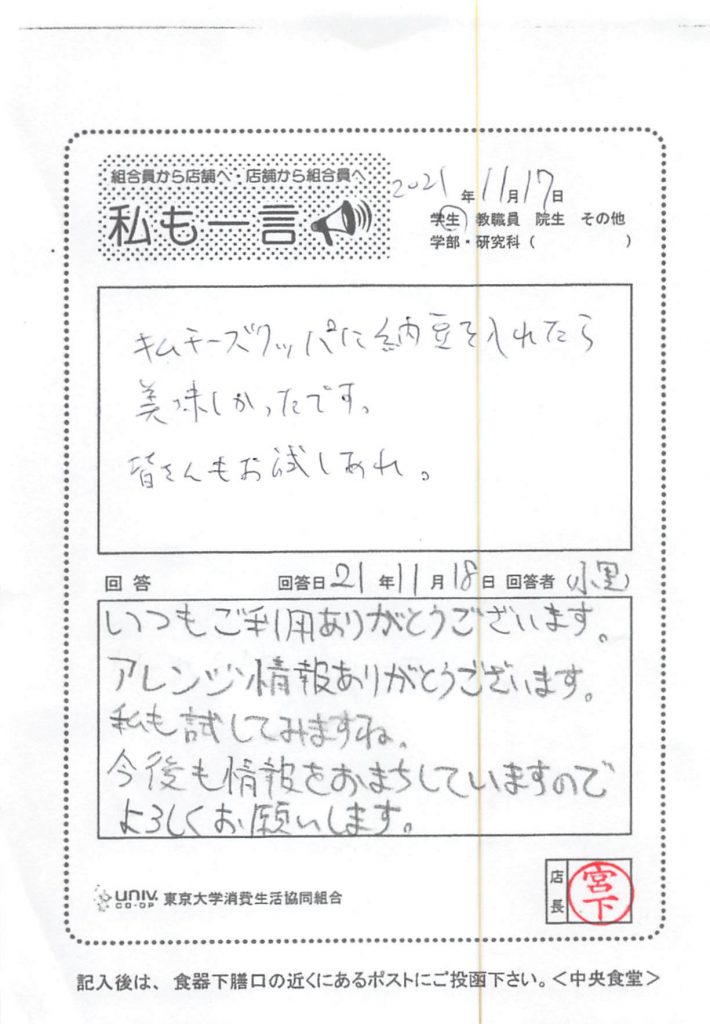 組合員から店舗へ・店舗から組合員へ
私も一言
2021年11月17日
学生 教職員 院生 その他
学部・研究科（　　　　　）
キムチーズクッパに納豆を入れたら
美味しかったです。
皆さんもお試しあれ。
回答 回答日21年11月18日 回答者（小黒）
いつもご利用ありがとうございます。
アレンジ情報ありがとうございます。
私も試してみますね。
今後も情報をおまちしていますので
よろしくお願いします。
UNIV. CO-OP 東京大学消費生活協同組合
店長 宮下
記入後は、食器下膳口の近くにあるポストにご投函下さい。＜中央食堂＞